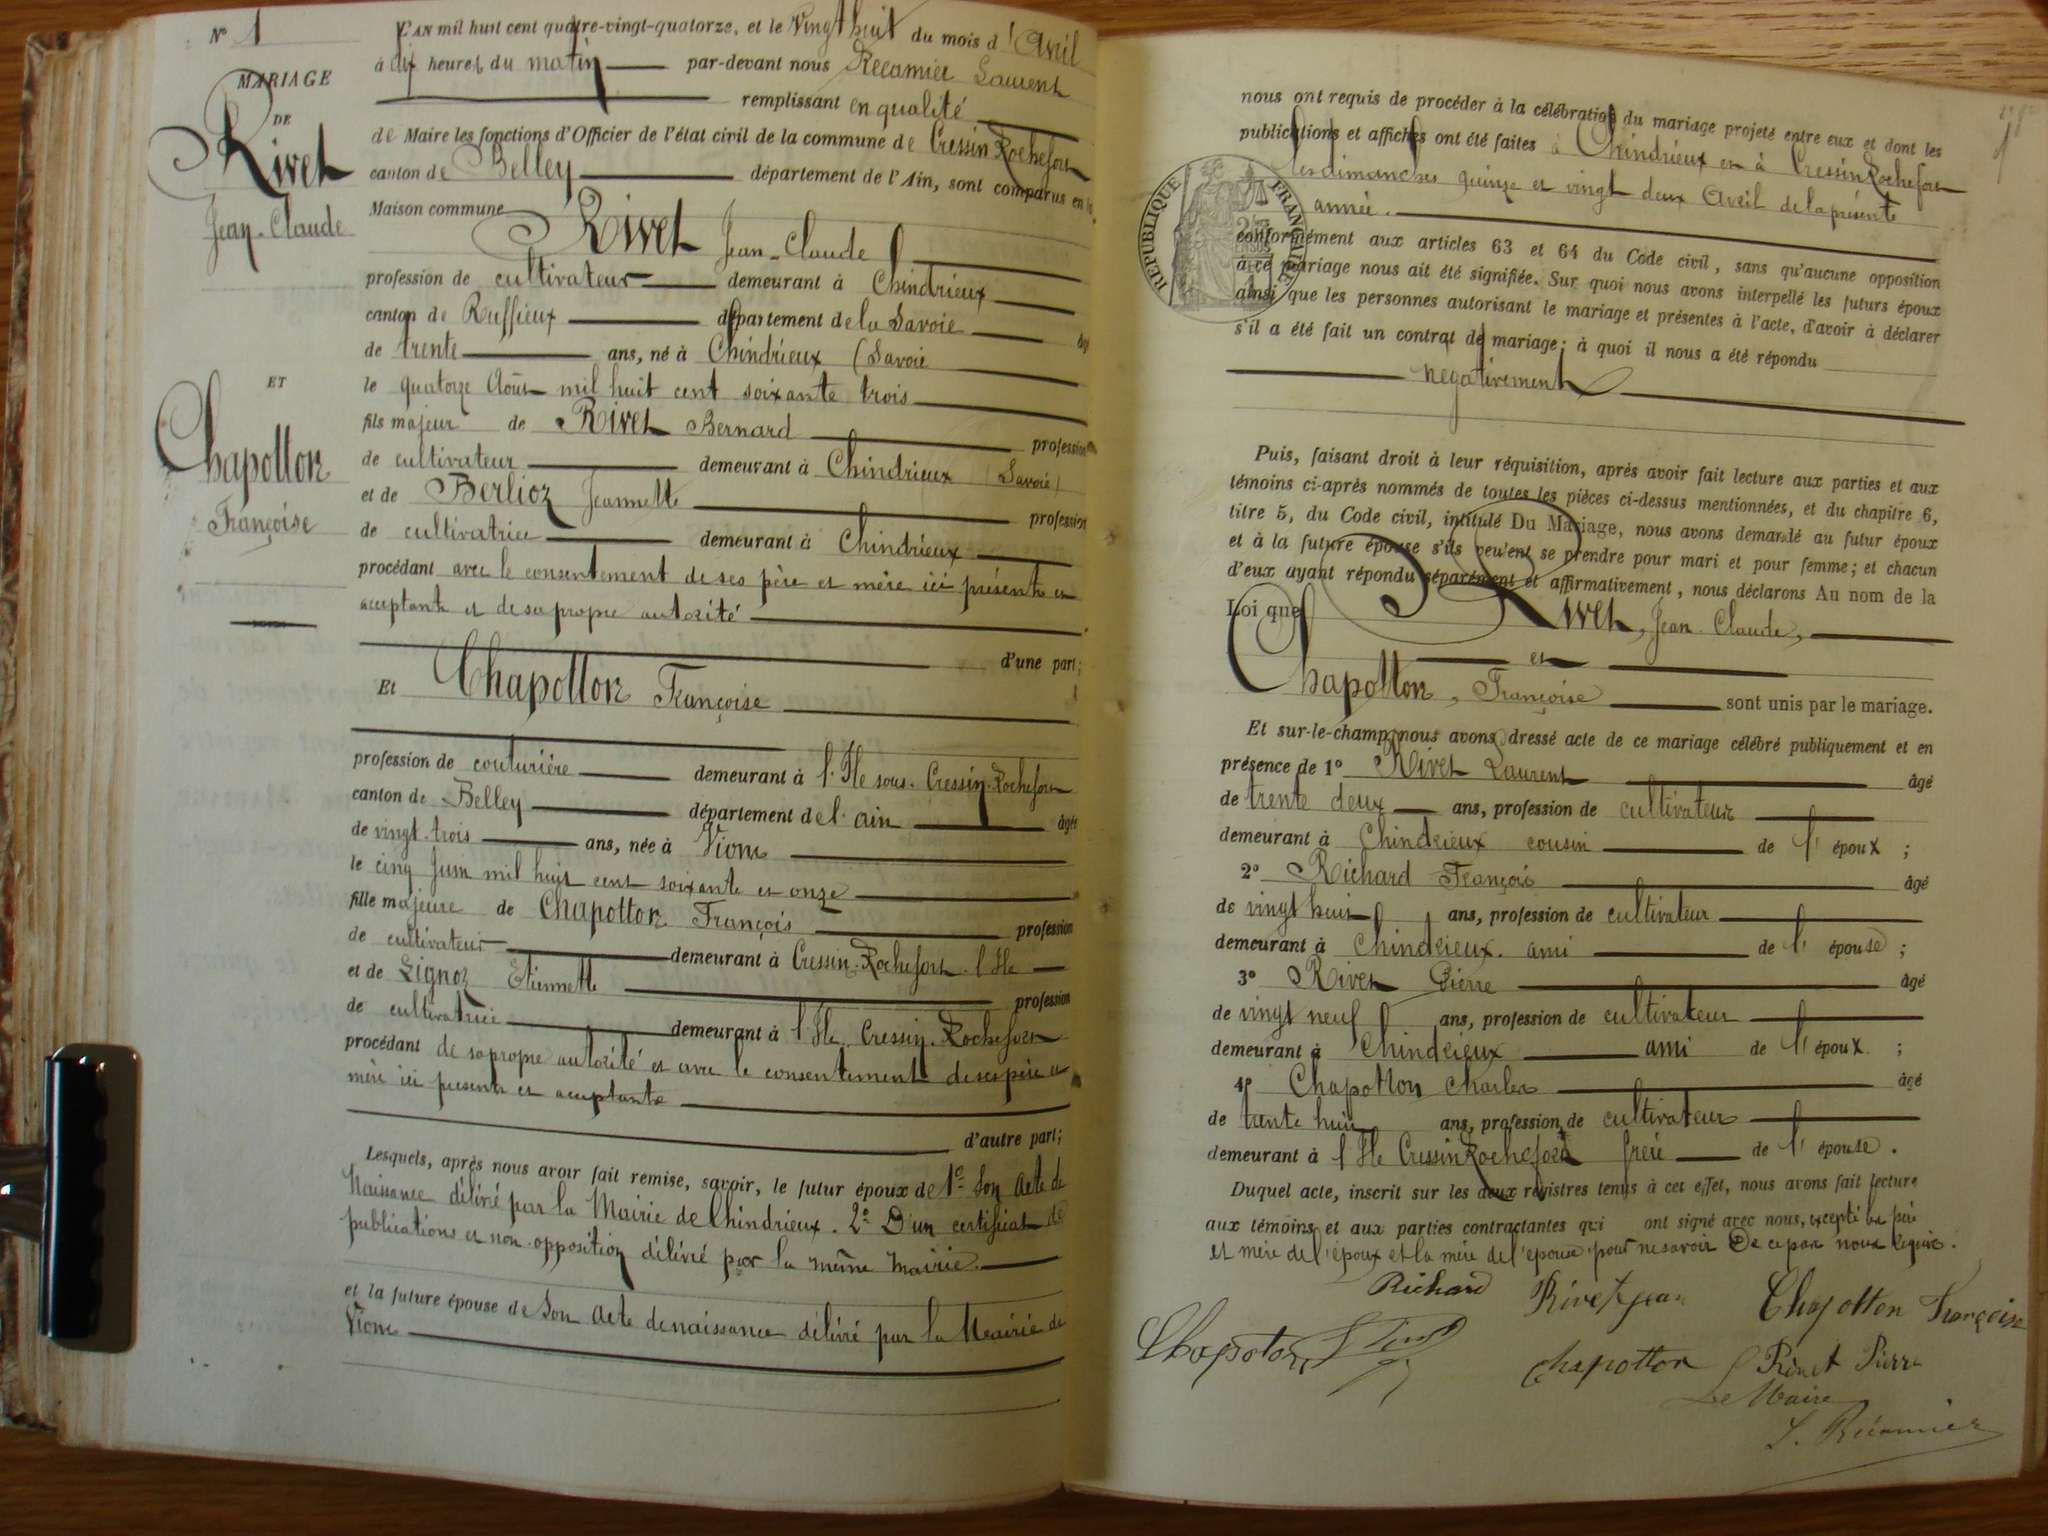 N° 1
MARIAGE
DE
Rivet
Jean-Claude
ET
Chapotton
Françoise
L'AN mil huit cent quatre-vingt-quatorze, et le vingt huit du mois d'Avril
à dix heures du matin par-devant nous Récamier Laurent
remplissant en qualité
de Maire les fonctions d'Officier de l'état civil de la commune de Cressin Rochefort
canton de Belley département de l'Ain, sont comparus en la
Maison commune Rivet Jean-Claude
profession de cultivateur demeurant à Chindrieux
canton de Ruffieux département de la Savoie âgé
de trente ans, né à Chindrieux (Savoie
le quatorze Août mil huit cent soixante trois
fils majeur de Rivet Bernard profession
de cultivateur demeurant à Chindrieux (Savoie)
et de Berlioz Jeannette profession
de cultivatrice demeurant à Chindrieux
procédant avec le consentement de ses père et mère ici présents et
acceptants et de sa propre autorité
d'une part;
Et Chapotton Françoise
profession de couturière demeurant à l'Ile sous-Cressin-Rochefort
canton de Belley département de l'ain âgée
de vingt-trois ans, née à Vions
le cinq Juin mil huit cent soixante et onze
fille majeure de Chapotton François profession
de cultivateur demeurant à Cressin-Rochefort-l'Ile
et de Lignoz Etiennette profession
de cultivatrice demeurant à l'Ile Cressin-Rochefort
procédant de sa propre autorité et avec le consentement de ses père et
mère ici presents et acceptants
d'autre part;
Lesquels, après nous avoir fait remise, savoir, le futur époux de 1° Son Acte de
Naissance délivré par la Mairie de Chindrieux. 2° D'un certificat de
publications et non-opposition délivré par la même mairie.
et la future épouse de Son Acte de naissance délivré par la Mairie de
Vions
nous ont requis de procéder à la célébration du mariage projeté entre eux et dont les
publications et affiches ont été faites à Chindrieux et à Cressin Rochefort
les dimanches quinze et vingt deux Avril de la présente
année.
RÉPUBLIQUE FRANÇAISE
conformément aux articles 63 et 64 du Code civil, sans qu'aucune opposition
à ce mariage nous ait été signifiée. Sur quoi nous avons interpellé les futurs époux
ainsi que les personnes autorisant le mariage et présentes à l'acte, d'avoir à déclarer
s'il a été fait un contrat de mariage; à quoi il nous a été répondu
négativement
Puis, faisant droit à leur réquisition, après avoir fait lecture aux parties et aux
témoins ci-après nommés de toutes les pièces ci-dessus mentionnées, et du chapitre 6,
titre 5, du Code civil, intitulé Du Mariage, nous avons demandé au futur époux
et à la future épouse s'ils veulent se prendre pour mari et pour femme; et chacun
d'eux ayant répondu séparément et affirmativement, nous déclarons Au nom de la
Loi que Rivet, Jean Claude,
et
Chapotton, Françoise sont unis par le mariage.
Et sur-le-champ nous avons dressé acte de ce mariage célébré publiquement et en
présence de 1° Rivet Laurent âgé
de trente deux ans, profession de cultivateur
demeurant à Chindrieux cousin de l'époux ;
2° Richard François âgé
de vingt huit ans, profession de cultivateur
demeurant à Chindrieux. ami de l'épouse ;
3° Rivet Pierre âgé
de vingt neuf ans, profession de cultivateur
demeurant à Chindrieux ami de l'époux ;
4° Chapotton Charles âgé
de trente huit ans, profession de cultivateur
demeurant à l'Ile Cressin Rochefort frère de l'épouse.
Duquel acte, inscrit sur les deux registres tenus à cet effet, nous avons fait lecture
aux témoins et aux parties contractantes qui ont signé avec nous, excepté les père
et mère de l'époux et la mère de l'épouse pour ne savoir De ce par nous requis.
Richard Rivet Jean Chapotton Françoise
Chapoton
chapotton Rivet Pierre
Le Maire
L. Récamier